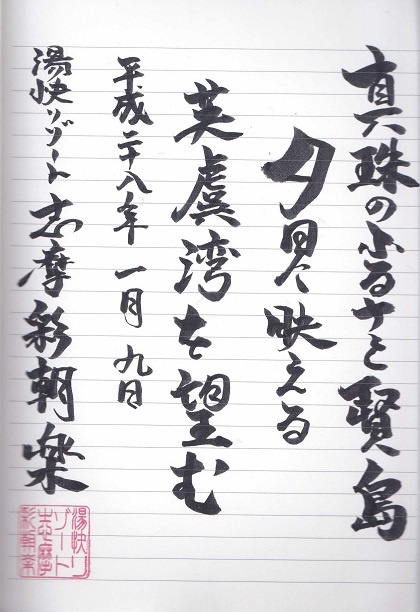 真珠のふるさと賢島
夕日映える
英虞湾を望む
平成二十八年 一月 九日
湯快リゾート志摩彩朝楽
湯快リ
ゾート
志摩
彩朝楽